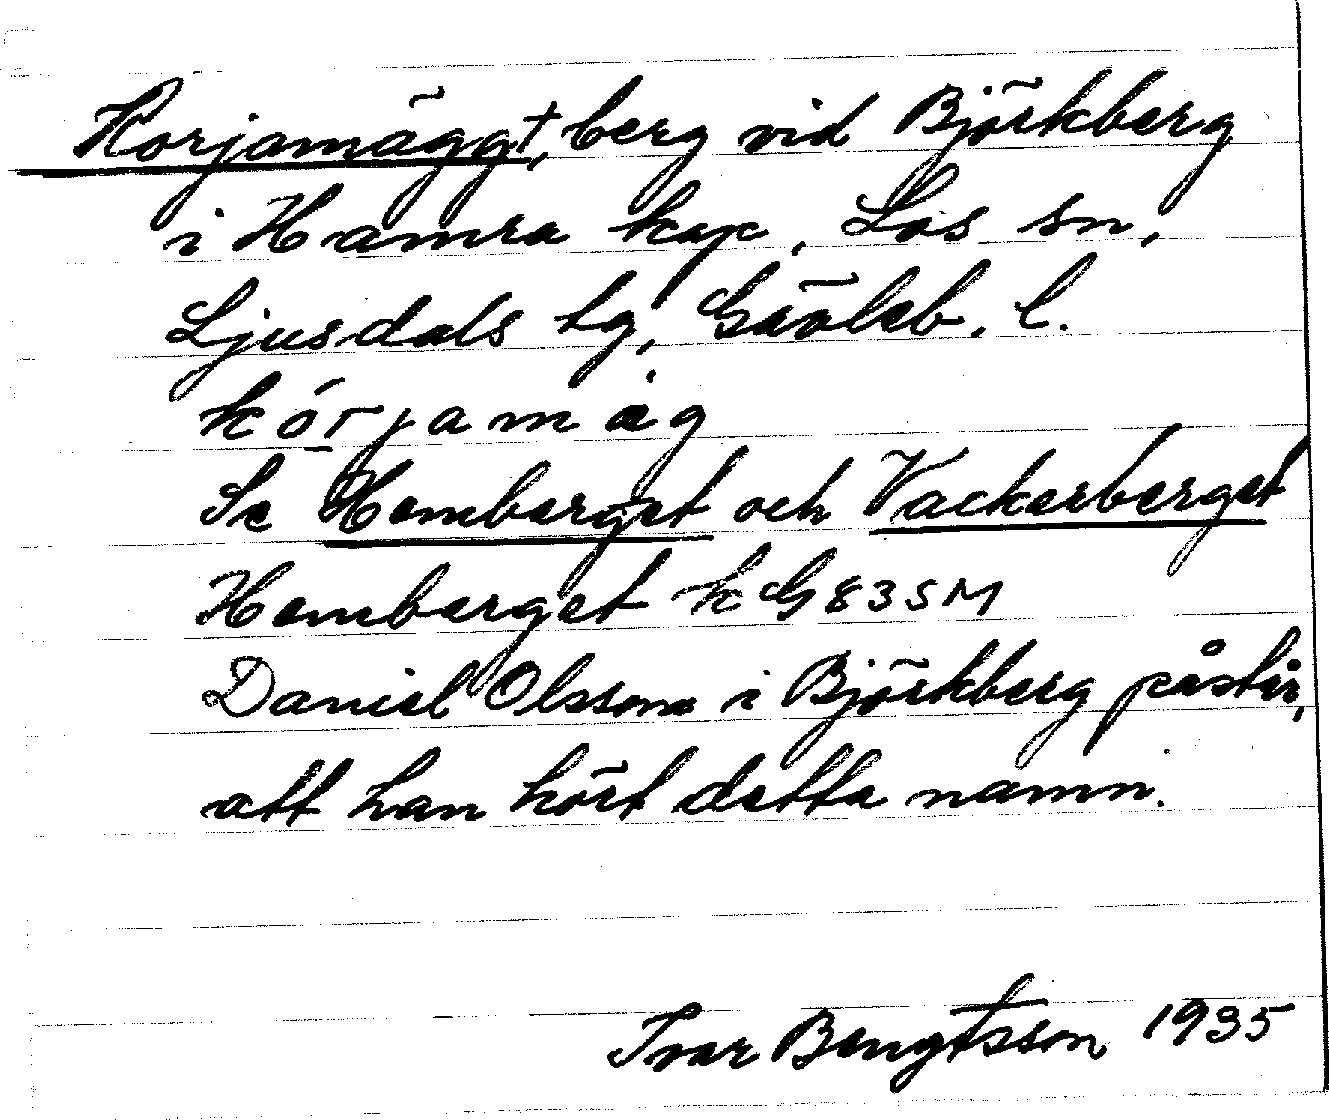 Korjamäggt, berg vid Björkberg
i Hamra kap, Los sn,
Ljusdals tg, Gävleb. l.
kórjamàg
Se Hemberget och Vackerberget
Hemberget kG835M
Daniel Olsson i Björkberg påstår,
att han hört detta namn.
Ivar Bengtsson 1935